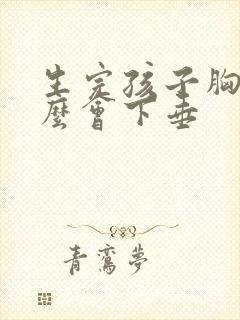 生完孩子胸
麼會下垂
青鸞夢